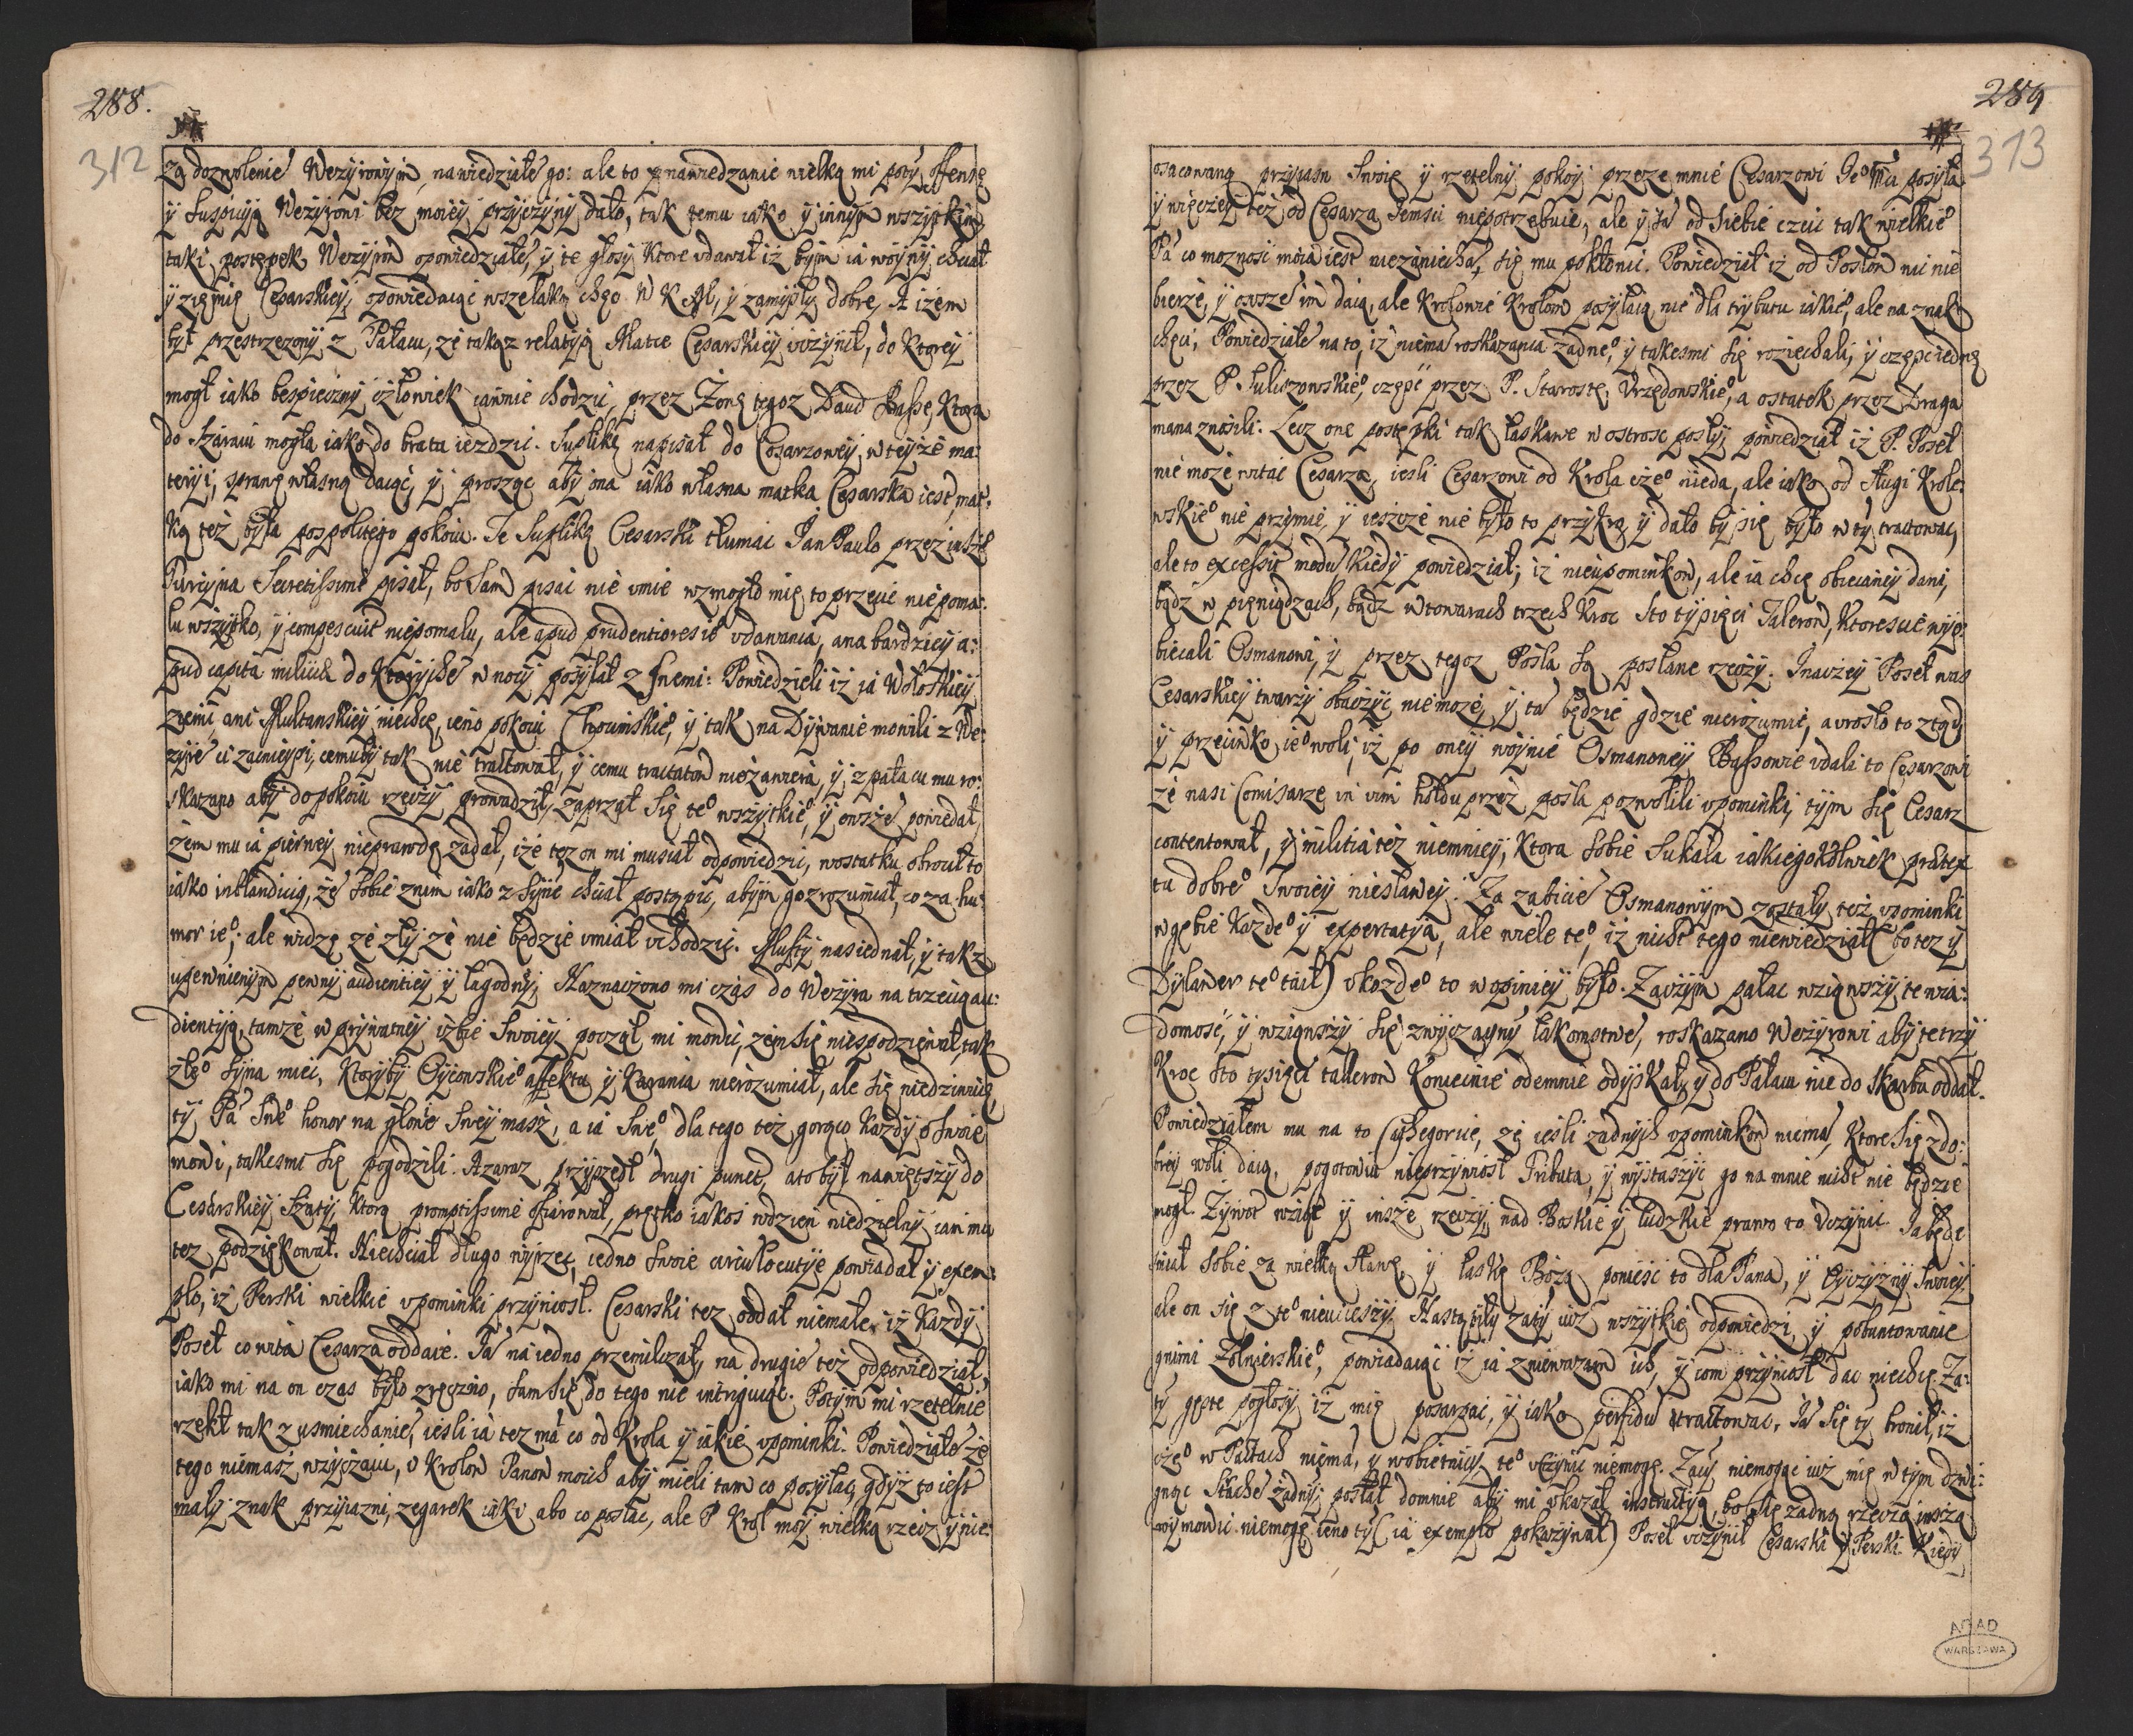 288.
312
za dozwolenié Wezyrowÿm, nawiedziałé go: ale to nawiedzanie wielką mi potÿ offensę
ÿ suspicÿą Wezÿrowi bez moiéÿ przÿczÿnÿ dało, tak temu iako ÿ innÿm wszÿtkim
taki postępek Wezÿrow opowiedziałé, ÿ te głosÿ ktore vdawał iż bÿm ia woÿnÿ chciał
ÿ zięmię Cesarskiéÿ, opowiedaiąc wszelaką chęć W K Mł, ÿ zamÿsłÿ dobre, A iżem
bÿł przestrzezonÿ z Pałacu, że takąz relatÿą Matce Cesarskiéÿ vczÿnił, do ktoreÿ
mogł iako bespiecznÿ człowiek iawnie chodzić, przez Żonę tegoz Daud Basse, ktora
do Szaraiu mogła iako do brata iezdzić. Suplikę napisał do Cesarzoweÿ, w teÿże ma:
terÿi, sprawę własną daiąc, ÿ prosząc abÿ ona iako własna matka Cesarska iest, mat:
ką też bÿła pospolitego pokoiu. Te Suplikę Cesarski tłumacz Jan Paulo przez iaszę
Turcÿna Secretissime pisał, bo Sam pisać nié vmié wzmogło mię to przecię niepoma:
łu wszÿtko, ÿ compescuit niepomału, ale apud prudentiores ié vdawania, a na bardzieÿ a:
pud capita militiæ do ktorÿché w nocÿ posÿłał z snemi: Powiedzieli iż ia Wołoskieÿ
ziemi, ani Multanskieÿ niechcę, ieno pokoiu Chocimskié°, ÿ tak na Dÿwanie mowili z We:
zÿré ci zacnieÿsi, czemubÿ tak nié tractował, ÿ czemu tractatow niezawiera, ÿ z pałacu mu ro:
skazano abÿ do pokoiu rzeczÿ prowadził, zaprzał się te° wszÿtkie°, ÿ owszé powiedał,
zém mu ia pierweÿ nieprawdę zadał, iże też on mi musiał odpowiedzić, wostatku obroćił to
iako in blandicią, żé sobié znim iako z Sÿné chciał postąpić, abÿm go zrozumiał, co za hu:
mor ié°; ale widzę zé złÿ żé nié będzié vmiał vchodzić. Muftÿ nasiednał, ÿ tak z
upewnienÿm pewnÿ audientieÿ ÿ łagodnÿ, Naznaczono mi czas do Wezÿra na trzecią au:
dientÿą, tamże w prÿwatneÿ izbié Swoieÿ począł mi mowić, zém się niespodziewał, tak
złę° Sÿna mieć, ktorÿbÿ Oÿcowskie° affektu ÿ karania nierozumiał, ale się niedziwuię,
tÿ Pa Swe° honor na głowie Sweÿ masz, a ia Swe°, dla tego też gorąco każdÿ o swoie
mowi, takesmi się pogodzili. A zaraz przÿszedł drugi punct, ato bÿł nawiętszÿ do
Cesarskieÿ Szatÿ, ktorą promptissime ofiarował, prętko iakoś wdzień niedzielnÿ iam mu
tez podziękował. Niechciał długo wÿrzec, iedno swoie circulocutÿe powiadał ÿ exem:
pło, iż Perski wielkie vpominki przÿniosł. Cesarski też oddał niemałe, iż każdÿ
Poseł co wita Cesarza, oddaie. Ja na iedno przemilczał, na drugié też odpowiedział,
iako mi na on czas bÿło zręczno, sam się do tego nie intriguiąc. Potÿm mi rzetelnie
rzekł tak z usmiechanié, iesli ia tez má co od Krola ÿ iakie vpominki. Powiedziałé żé
tego niemasz wzÿczaiu, v Krolow Panow moich abÿ mieli tam co posÿłać, gdÿz to iest
małÿ znak przÿiazni, zegarek iaki abo co posłac, ale P Krol moÿ wielką rzecz ÿ nie:
289
313
osacowaną przÿiazn Swoię ÿ rzetelnÿ pokoÿ przeze mnié Cesarzowi Je° posÿła
ÿ więczeÿ tez od Cesarza Jemsci niepotrzebuie, ale ÿ Ja od siebié czcic tak wielkie°
Pa co moznosc moia iest niezaniechá, się mu pokłonic. Powiedział iż od Posłow nic nié
bierzé, ÿ owszé im daią, ale Krolowié Krolom posÿłaią nié dla trÿbutu iakie°, ale na znak
chęci, Powiedziałé na to, iż niemá roskazania żadne°, ÿ takesmi się roziechali, ÿ częscie dnę
przez P. Suliszowskie°, częsć przez P. Starostę Vrzędowskie°, a ostatek przez Draga
mana znosili. Lecz one postępki tak łaskawe w ostrosc poszłÿ, powiedział iż P. Poseł
nié może witac Cesarza, iesli Cesarzowi od Krola cze° nieda, ale iako od sługi Krole:
wskie° nié przÿmié, ÿ ieszcze nié bÿło to przÿkra, ÿ dało bÿ się bÿło w tÿ tractowac,
ale to excessit modu kiedÿ powiedział, iz nieupominkow, ale ia chcę obiecaneÿ dani,
bądz w pięniądzach, bądz wtowarach trzech kroc sto tÿsięci Talerow, ktorescie wÿo:
biecali Osmanowi, ÿ przez tegoz Posła są posłane rzeczÿ. Inaczeÿ Poseł nas
Cesarskieÿ twarzÿ obaczÿc niemożé, ÿ tá będzie gdzie nierozumie, a vrosło to ztąd
ÿ przeciwko ie° woli, iż po oneÿ woÿnié Osmanoweÿ Bassowié vdali to Cesarzowi
żé nasi Comisarze in vim hołdu przez posła pozwolili vpominki, tÿm się Cesarz
contentował, ÿ militia też niemnieÿ, ktora sobié sukała iakiegokolwiek prætex
tu dobre° Swoieÿ niesławeÿ. Za zabicié Osmanowÿm zostałÿ też vpominki
wgębié kazde° ÿ expertatÿa, ale wiele te°, iż nicht tego niewiedział (bo tez ÿ
Dÿlawer te° taił) v kazde° to w opinieÿ bÿło. Zaczÿm pałac wziąwszÿ te wia:
domosć, ÿ wziąwszÿ się zwÿczaÿnÿ łakomstwé, roskazano Wezÿrowi abÿ te trzÿ
kroc sto tysięci tallerow konieczniè odemnie odÿskał, ÿ do Pałacu nie do skarbu oddał.
Powiedziałem mu na to Cathegoricé, zé iesli zadnÿch vpominkow niemá, ktore się zdo:
breÿ woli daią, pogotowiu nieprzÿniosł Tributa, ÿ wÿstaszÿc go na mnié nicht nié będzié
mogł. Zÿwot wziąć ÿ insze rzeczÿ, nad Boskié ÿ ludzkié prawo to Vczÿnić. Ja będę
miał sobié za wielką sławę, ÿ łaskę Bożą ponieść to dla Pana, ÿ Oÿczÿznÿ Swoieÿ,
ale on się z te° nieucieszÿ. Nastąpiłÿ zatÿ iuż wszÿtkié odpowiedzi, ÿ pobuntowanié
gnimi Zołnierskie°, powiadaiąc iz ia zniewazam ich, ÿ com przÿniosł dac niechcę. Za:
tÿ gęste pogłosÿ iż mię posarpać, ÿ iako perfidu tractować, Já się tÿ bronił, iż
cze° w Pactach niemá, ÿ wobietnicÿ te° vczÿnic niemogę. Zatÿ niemogąc iuż mię w tÿm dzwi:
gnąc Stachié żadnÿ, posłał domnie abÿ mi vkazał instructÿą, bo się żadną rzeczą inszą
wÿmowić niemogę ieno tÿ (ia exemplo pokazÿwał) Poseł vczÿnił Cesarski ÿ Perski. Kiedÿ
AGAD
WARSZAWA